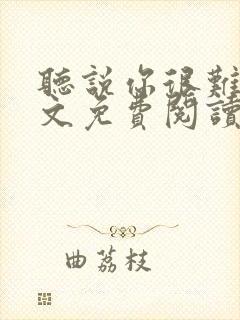 聽說你很難
文免費閱讀
曲荔枝